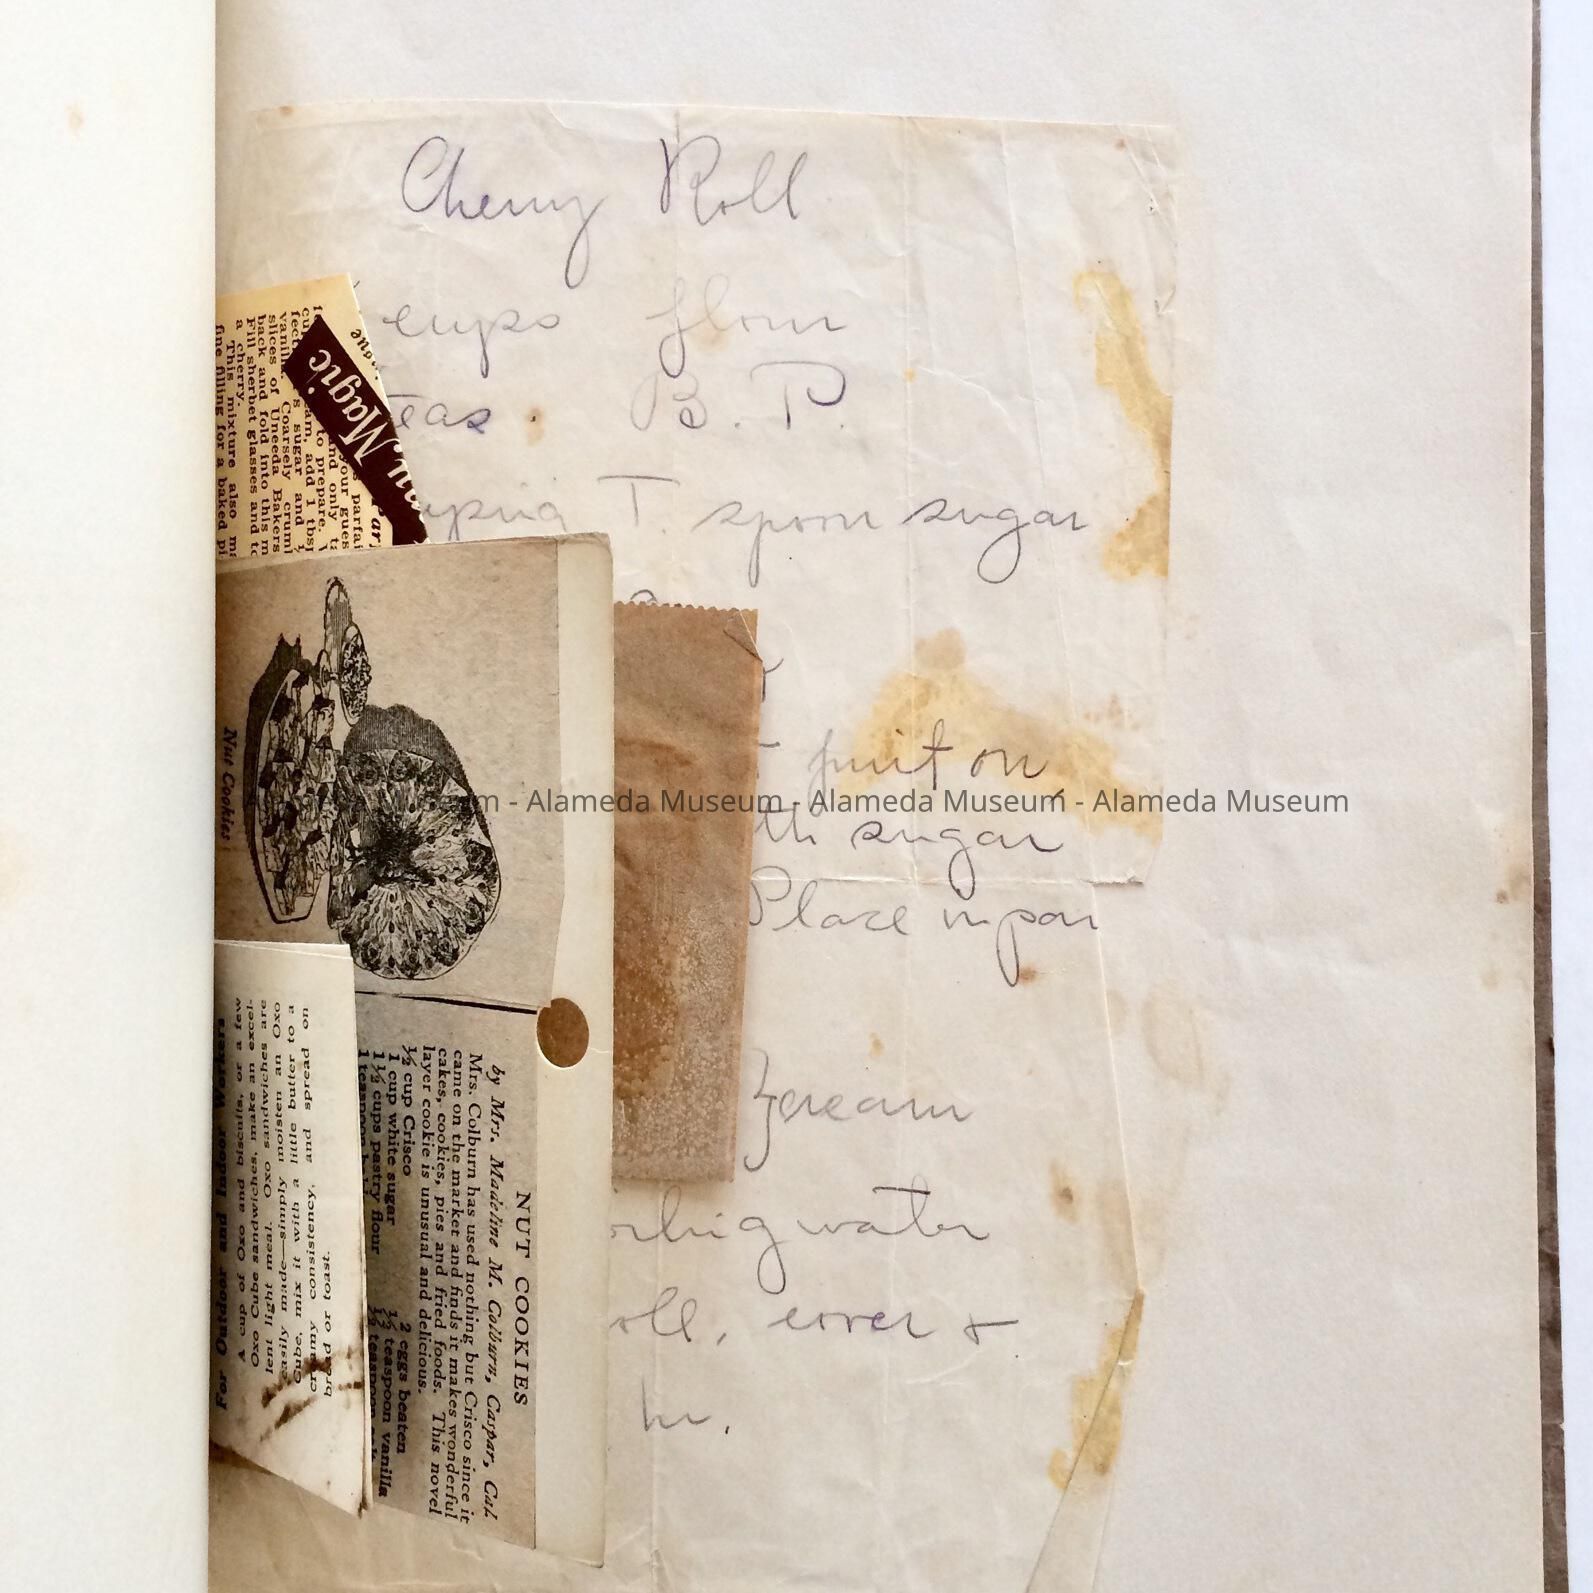 Cherry Roll
cups flour
teas. B. P.
T. spoon sugar
fruit on
th sugar
Place in pan
cream
water
oll, cover &
hr.
Magic
This mixture also
fine filling for a baked
a cherry.
Fill sherbet glasses and
back and fold into this
slices of Uneeda Bakers
vanilla. Coarsely
sugar and
add 1
to prepare.
and only
your
parfai
Nut Cookies
NUT COOKIES
by Mrs. Madeline M. Colburn, Caspar, Cal
Mrs. Colburn has used nothing but Crisco since it
came on the market and finds it makes wonderful
cakes, cookies, pies and fried foods. This novel
layer cookie is unusual and delicious.
½ cup Crisco 2 eggs beaten
1 cup white sugar ½ teaspoon vanilla
1½ cups pastry flour ½ teaspoon
1 teaspoon
For Outdoor and Indoor Workers
A cup of Oxo and biscuits, or a few
Oxo Cube sandwiches, make an excel-
lent light meal. Oxo sandwiches are
easily made—simply moisten an Oxo
Cube, mix it with a little butter to a
creamy consistency, and spread on
bread or toast.
Alameda Museum - Alameda Museum - Alameda Museum - Alameda Museum